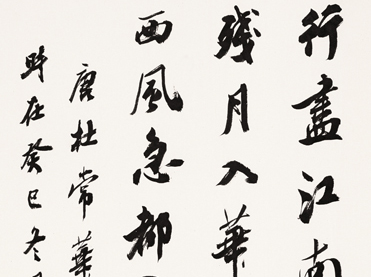 行盡江南
殘月入華
西風急都
唐杜常華
時在癸巳冬